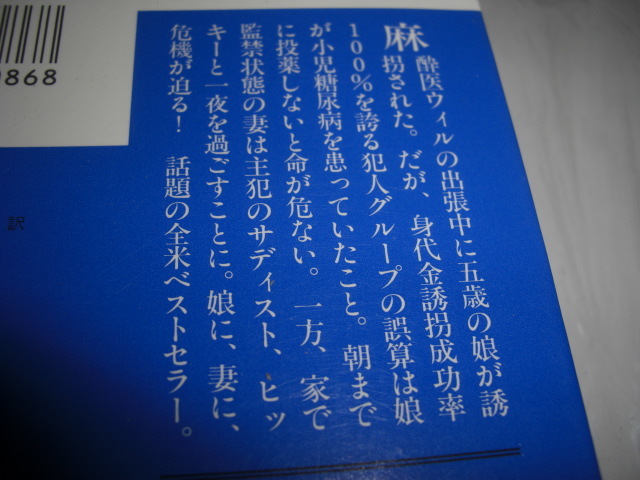 麻酔医ウィルの出張中に五歳の娘が誘
拐された。だが、身代金誘拐成功率
100%を誇る犯人グループの誤算は娘
が小児糖尿病を患っていたこと。朝まで
に投薬しないと命が危ない。一方、家で
監禁状態の妻は主犯のサディスト、ヒッ
キーと一夜を過ごすことに。娘に、妻に、
危機が迫る！　話題の全米ベストセラー。
訳
9868